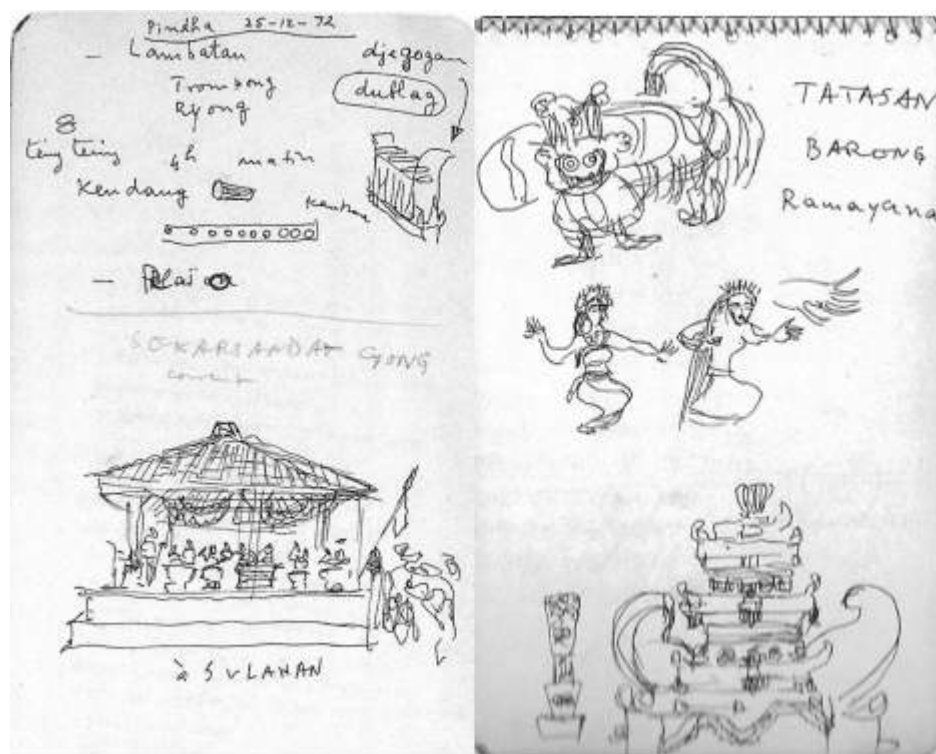 Pindha 25-12-72
— Lambatan
Trompong
Ryong
djegogan
dublag
8
teng teing
4h matin
Kendang
—
SEKARSANDAT GONG
concert
à SULAHAN
TATASAN
BARONG
Ramayana